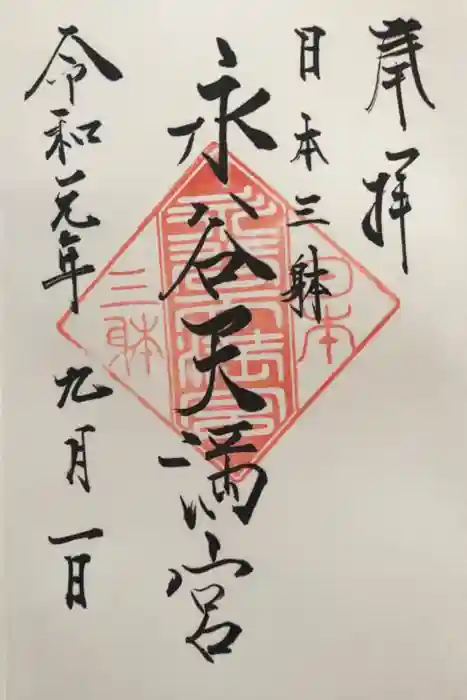 奉拝
日本三躰
永谷天満宮
令和元年九月一日
日本
三躰